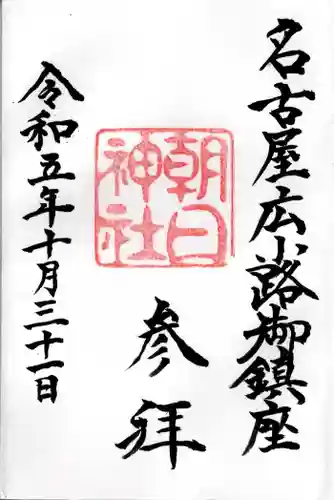 名古屋広小路御鎮座
朝日
神社
参拜
令和五年十月三十一日